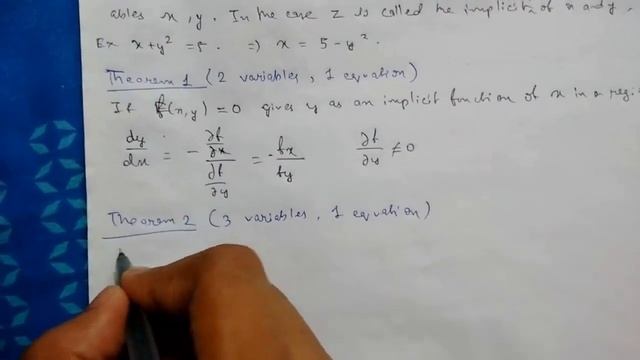 ables x, y. In the case z is called the implicit of x and y.
Ex x + y² = 5. ⇒ x = 5 - y².
Theorem 1 (2 variables, 1 equation)
If f(x,y) = 0 gives y as an implicit function of x in a regi
dy/dx = - (∂f/∂x)/(∂f/∂y) = - fx/fy ∂f/∂y ≠ 0
Theorem 2 (3 variables, 1 equation)